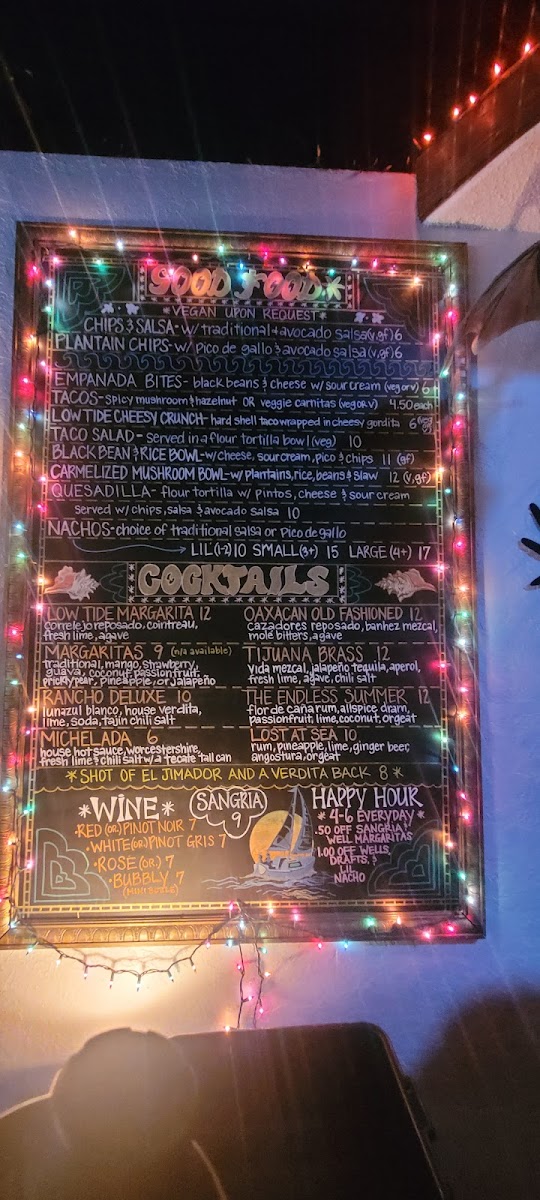 GOOD FOOD*
*VEGAN UPON REQUEST*
CHIPS & SALSA - w/ traditional & avocado salsa (v,gf) 6
PLANTAIN CHIPS - w/ pico de gallo & avocado salsa (v,gf) 6
EMPANADA BITES - black beans & cheese w/ sour cream (veg or v) 6
TACOS - spicy mushroom & hazelnut OR veggie carnitas (veg or v) 4.50 each
LOW TIDE CHEESY CRUNCH - hard shell taco wrapped in cheesy gordita 6
TACO SALAD - served in a flour tortilla bowl (veg) 10
BLACK BEAN & RICE BOWL - w/ cheese, sour cream, pico & chips 11 (gf)
CARMELIZED MUSHROOM BOWL - w/ plantains, rice, beans & slaw 12 (v,gf)
QUESADILLA - flour tortilla w/ pintos, cheese & sour cream
served w/ chips, salsa & avocado salsa 10
NACHOS - choice of traditional salsa or Pico de gallo
LIL (1-2) 10 SMALL (3+) 15 LARGE (4+) 17
COCKTAILS
LOW TIDE MARGARITA 12
corralejo reposado, cointreau,
fresh lime, agave
OAXACAN OLD FASHIONED 12
cazadores reposado, banhez mezcal,
molé bitters, agave
MARGARITAS 9 (n/a available)
traditional, mango, strawberry,
guava, coconut, passionfruit,
prickly pear, pineapple, or jalapeño
TIJUANA BRASS 12
vida mezcal, jalapeño tequila, aperol,
fresh lime, agave, chili salt
RANCHO DELUXE 10
lunazul blanco, house verdita,
lime, soda, tajin chili salt
THE ENDLESS SUMMER 12
flor de caña rum, allspice dram,
passionfruit, lime, coconut, orgeat
MICHELADA 6
house hot sauce, worcestershire,
fresh lime & chili salt w/ a tecate tall can
LOST AT SEA 10
rum, pineapple, lime, ginger beer,
angostura, orgeat
*SHOT OF EL JIMADOR AND A VERDITA BACK 8*
*WINE*
•RED (OR) PINOT NOIR 7
•WHITE (OR) PINOT GRIS 7
•ROSÉ (OR) 7
•BUBBLY 7
(MINI BOTTLE)
SANGRIA
9
HAPPY HOUR
* 4-6 EVERYDAY *
.50 OFF SANGRIA &
WELL MARGARITAS
1.00 OFF WELLS,
DRAFTS, &
LIL
NACHO